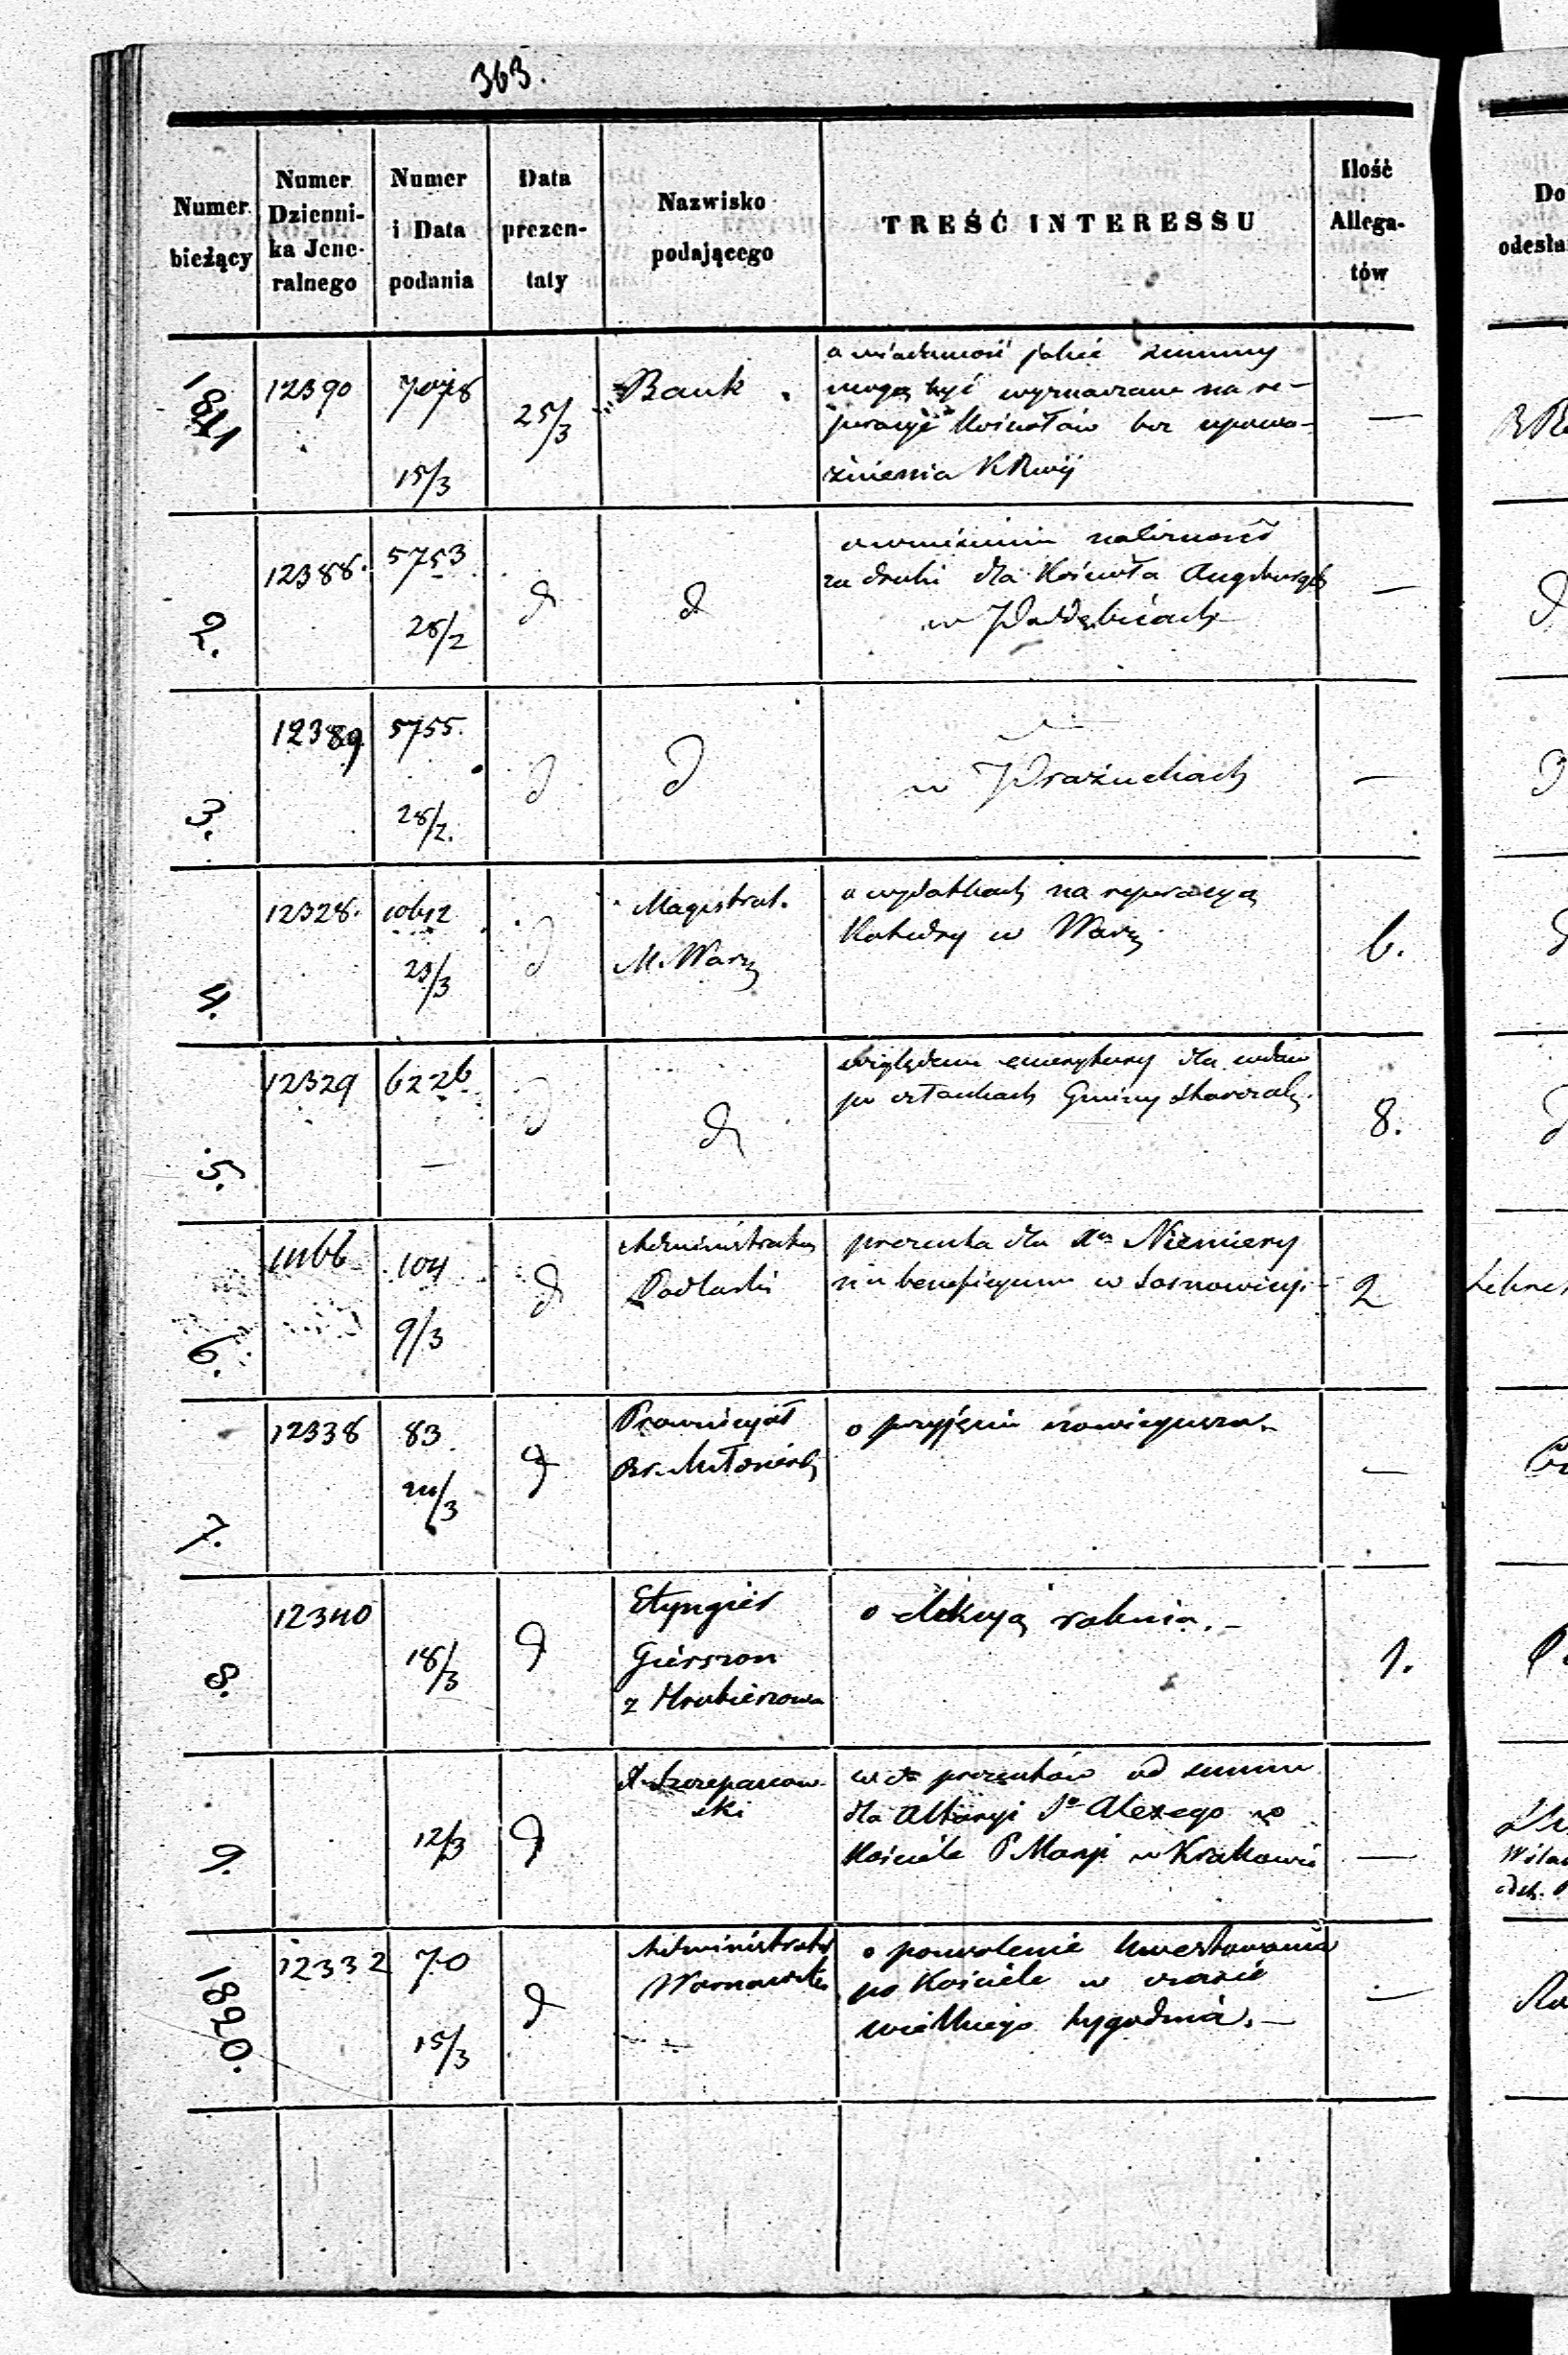 363.
Numer bieżący
Numer Dzienni-ka Jene-ralnego
Numer i Data podania
Data prezen-taty
Nazwisko podającego
TREŚĆ INTERESSU
Ilość Allega-tów
Do
odesła
1811 12390 7078 15/3 25/3 Bank
o wiadomość jakie summy
mogą być wyznaczane na re-
peracye Kościołów bez upowa-
żnienia KRwij —
2. 12388. 5753 28/2 d d
należność
za druki dla Kościoła Augsburgs
w Poddębicach —
3. 12389 5755. 28/2. d d
w Prażuchach —
4. 12328. 10612 23/3 d Magistrat.
M. Warsz
o wydatkach na reperacyą
Katedry w Warsz 6.
5. 12329 6226 — d d
względem emerytury dla wdów
po członkach Gminy 8.
6. 104 9/3 d Administrator
Podlaski
prezenta dla Xa Niemiery
na beneficyum w Sosnowicy. 2
7. 12338 83 d Prowincyał
o przyjęciu nowicyusza. —
8. 12340 18/3 d Etyngier
Gierszon
z Hrubieszowa
o rabina. — 1.
9. 12/3 d X. Szczepanow-
ski
od summ
dla Altaryi So Alexego w
Kościele P Maryi w Krakowie —
1820. 12332 70 15/3 d Administrator
Warszawski
o pozwolenie kwestowania
po Kościele w czasie
wielkiego tygodnia. —